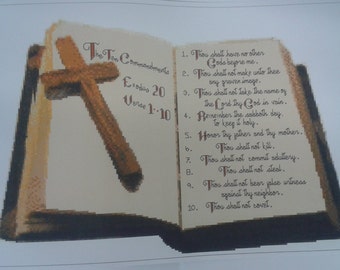 The Ten Commandments
Exodus 20
Verse 1-10
1. Thou shall have no other
Gods before me.
2. Thou shall not make unto thee
any graven image.
3. Thou shall not take the name of
the Lord thy God in vain.
4. Remember the sabbath day
to keep it holy.
5. Honor thy father and thy mother.
6. Thou shall not kill.
7. Thou shall not commit adultery.
8. Thou shall not steal.
9. Thou shall not bear false witness
against thy neighbor.
10. Thou shall not covet.